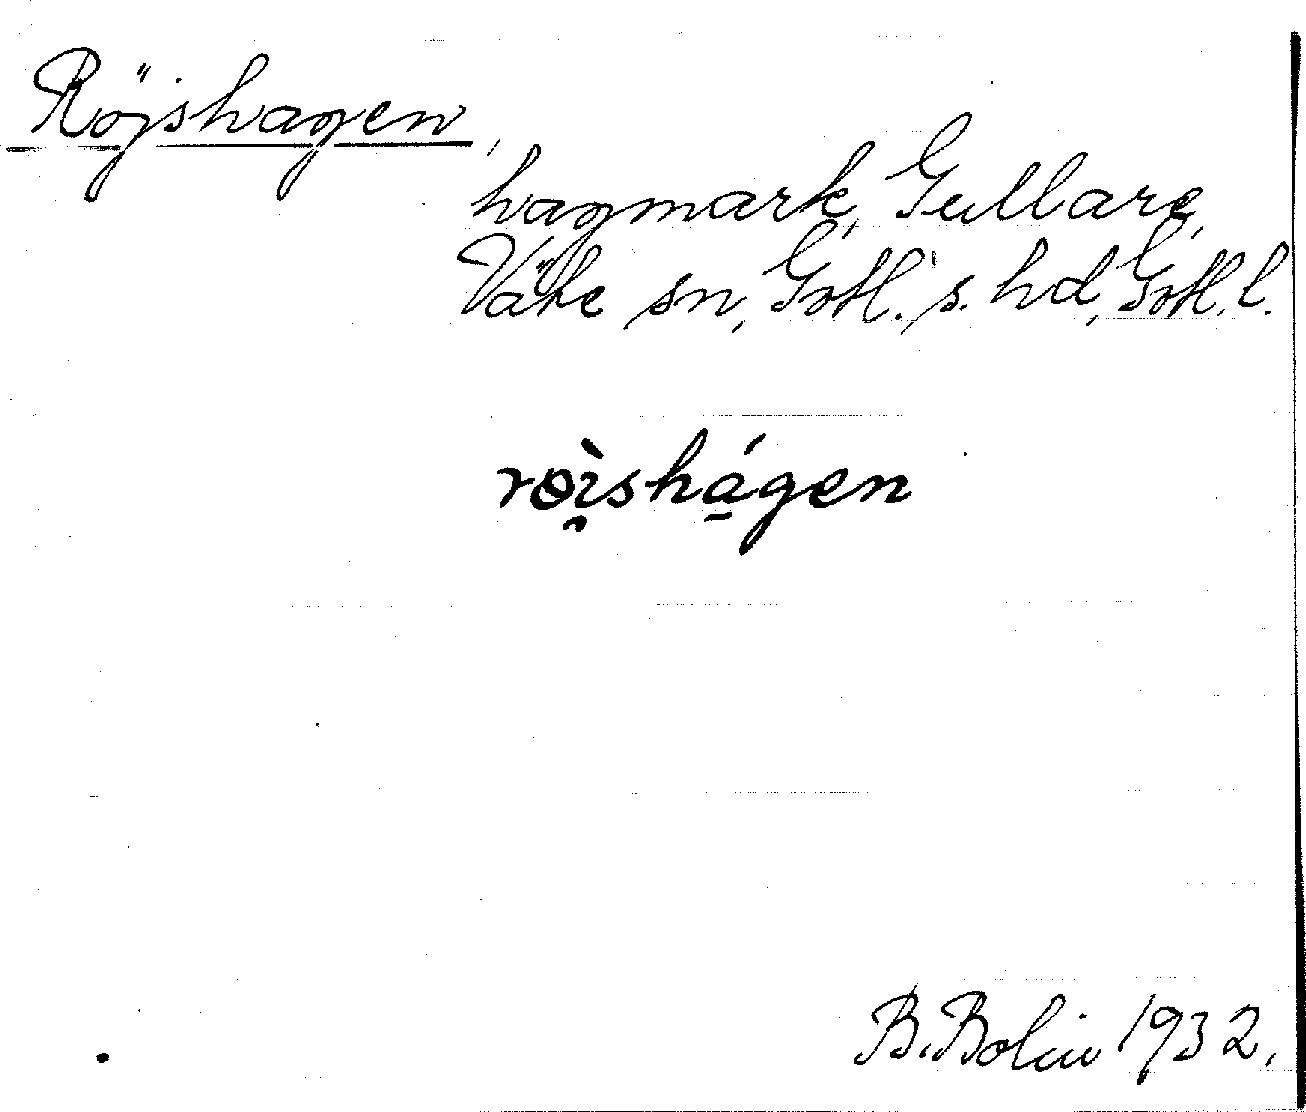 Röjshagen,
hagmark, Gullarå,
Väte sn, Gotl. s. hd, Gotl. l.
rɵì̯shá̱gen
B. Bolin 1932.